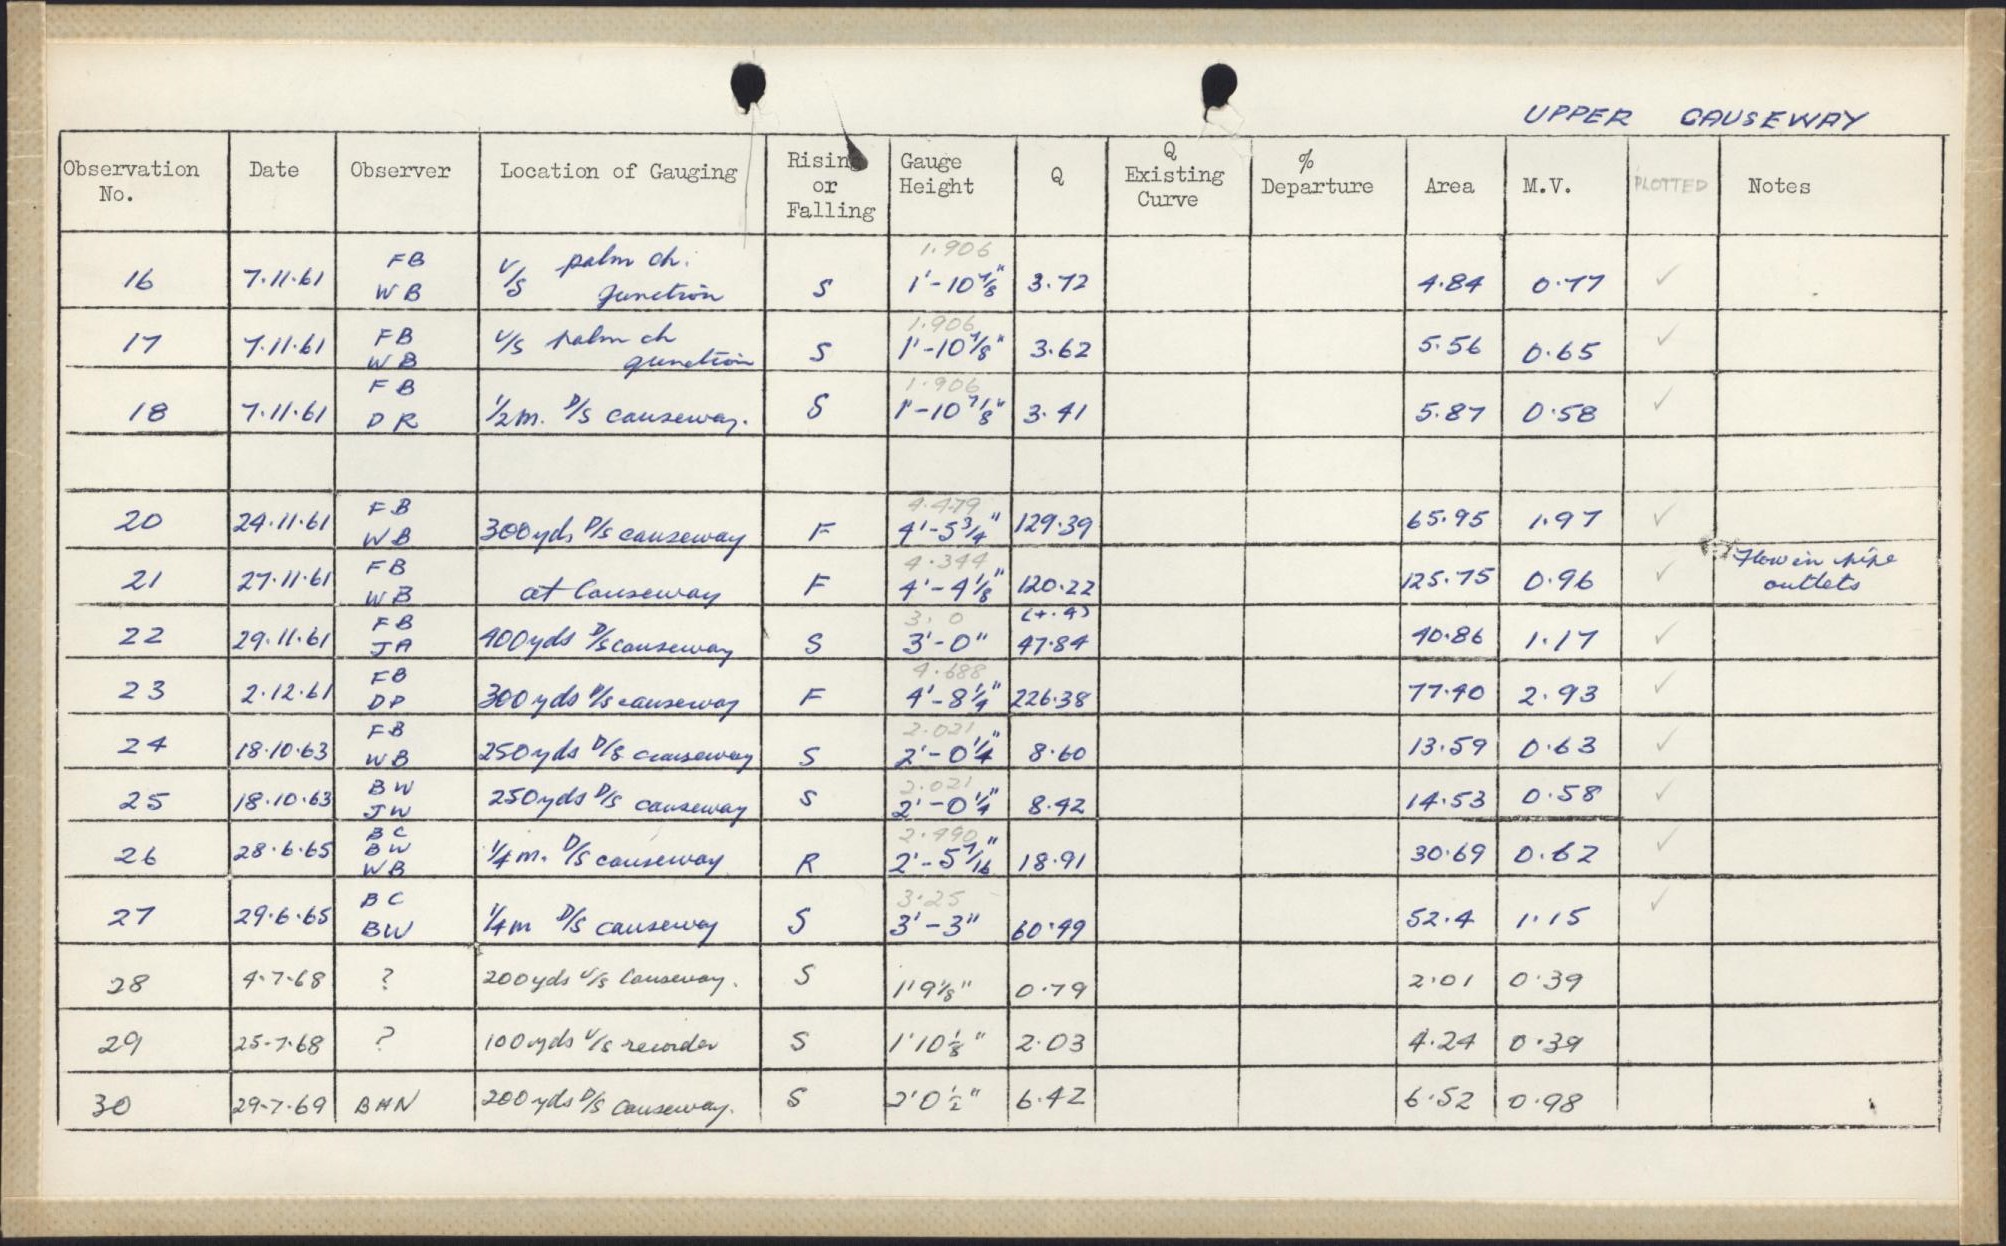 UPPER CAUSEWAY
Observation No. | Date | Observer | Location of Gauging | Rising or Falling | Gauge Height | Q | Q Existing Curve | % Departure | Area | M.V. | PLOTTED | Notes
16 | 7.11.61 | FB WB | U/S palm ch. junction | S | 1.906 1'-10 7/8" | 3.72 | 4.84 | 0.77 | ✓
17 | 7.11.61 | FB WB | U/S palm ch junction | S | 1.906 1'-10 7/8" | 3.62 | 5.56 | 0.65 | ✓
18 | 7.11.61 | FB DR | 1/2 m. D/S causeway. | S | 1.906 1'-10 7/8" | 3.41 | 5.87 | 0.58 | ✓
20 | 24.11.61 | FB WB | 300yds D/S causeway | F | 4.479 4'-5 3/4" | 129.39 | 65.95 | 1.97 | ✓
21 | 27.11.61 | FB WB | at Causeway | F | 4.344 4'-4 1/8" | 120.22 | 125.75 | 0.96 | ✓ | Flow in pipe outlets
22 | 29.11.61 | FB JA | 400yds D/S causeway | S | 3.0 3'-0" | (+.4) 47.84 | 40.86 | 1.17 | ✓
23 | 2.12.61 | FB DP | 300yds D/S causeway | F | 4.688 4'-8 1/4" | 226.38 | 77.40 | 2.93 | ✓
24 | 18.10.63 | FB WB | 250yds D/S causeway | S | 2.021 2'-0 1/4" | 8.60 | 13.59 | 0.63 | ✓
25 | 18.10.63 | BW JW | 250yds D/S causeway | S | 2.021 2'-0 1/4" | 8.42 | 14.53 | 0.58 | ✓
26 | 28.6.65 | BC BW WB | 1/4 m. D/S causeway | R | 2.490 2'-5 7/16" | 18.91 | 30.69 | 0.62 | ✓
27 | 29.6.65 | BC BW | 1/4 m D/S causeway | S | 3.25 3'-3" | 60.49 | 52.4 | 1.15 | ✓
28 | 4-7-68 | ? | 200yds U/S Causeway. | S | 1'9 1/8" | 0.79 | 2.01 | 0.39
29 | 25-7-68 | ? | 100yds U/S recorder | S | 1'10 1/8" | 2.03 | 4.24 | 0.39
30 | 29-7-69 | BHN | 200yds D/S Causeway. | S | 2'0 1/2" | 6.42 | 6.52 | 0.98